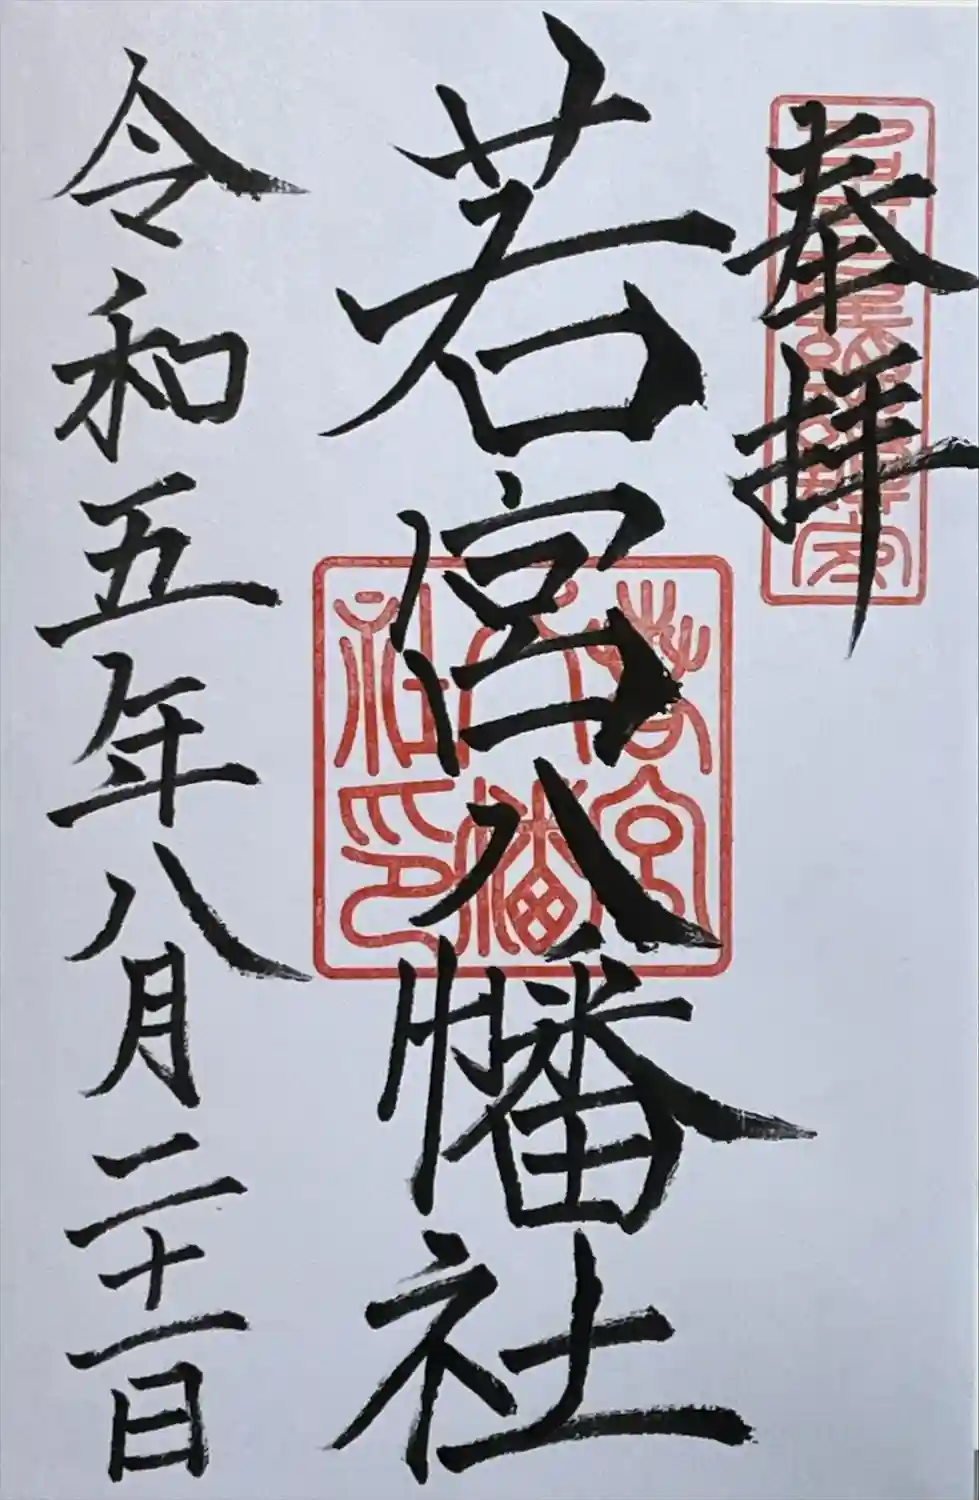 奉拝
若宮八幡社
若宮八幡社印
令和五年八月二十一日